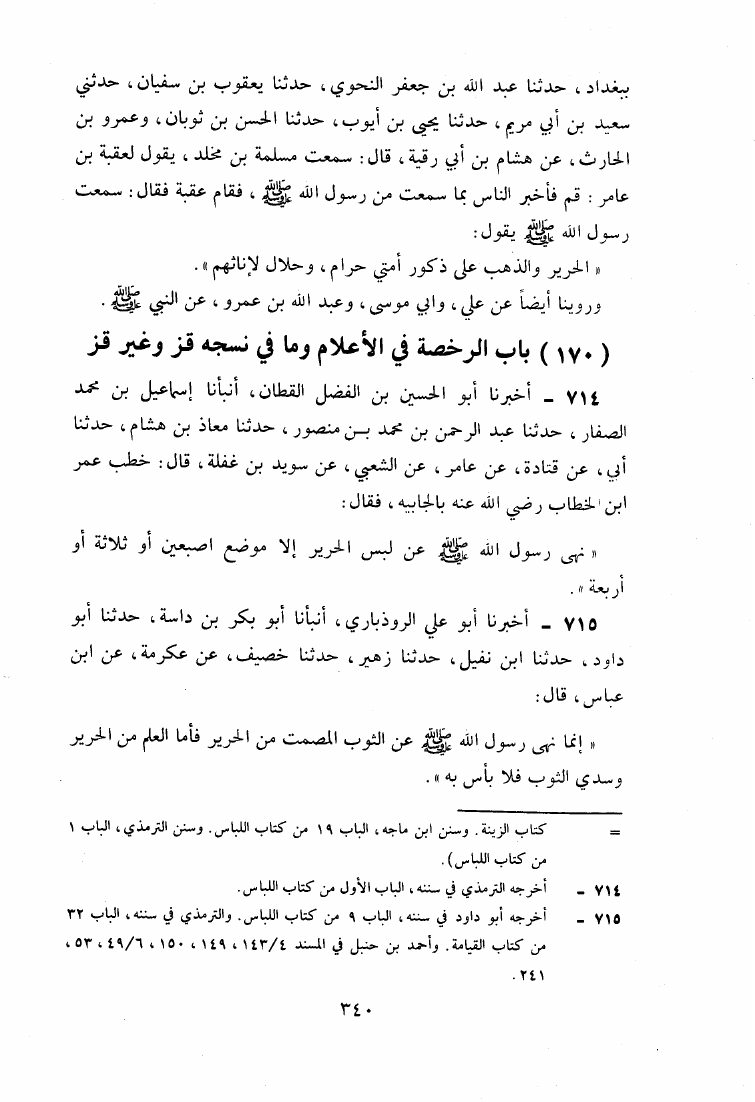 ببغداد ، حدثنا عبد الله بن جعفر النحوي ، حدثنا يعقوب بن سفيان ، حدثني
سعيد بن أبي مريم ، حدثنا يحيى بن أيوب ، حدثنا الحسن بن ثوبان ، وعمرو بن
الحارث ، عن هشام بن أبي رقية ، قال : سمعت مسلمة بن مخلد ، يقول لعقبة بن
عامر : قم فأخبر الناس بما سمعت من رسول الله ﷺ ، فقام عقبة فقال : سمعت
رسول الله ﷺ يقول :
« الحرير والذهب على ذكور أمتي حرام ، وحلال لإناثهم » .
وروينا أيضاً عن علي ، وابي موسى ، وعبد الله بن عمرو ، عن النبي ﷺ .
( ١٧٠ ) باب الرخصة في الأعلام وما في نسجه قز وغير قز
٧١٤ - أخبرنا أبو الحسين بن الفضل القطان ، أنبأنا إسماعيل بن محمد
الصفار ، حدثنا عبد الرحمن بن محمد بـن منصور ، حدثنا معاذ بن هشام ، حدثنا
أبي ، عن قتادة ، عن عامر ، عن الشعبي ، عن سويد بن غفلة ، قال : خطب عمر
ابن الخطاب رضي الله عنه بالجابيه ، فقال :
« نهى رسول الله ﷺ عن لبس الحرير إلا موضع اصبعين أو ثلاثة أو
أربعة » .
٧١٥ - أخبرنا أبو علي الروذباري ، أنبأنا أبو بكر بن داسة ، حدثنا أبو
داود ، حدثنا ابن نفيل ، حدثنا زهير ، حدثنا خصيف ، عن عكرمة ، عن ابن
عباس ، قال :
« إنما نهى رسول الله ﷺ عن الثوب المصمت من الحرير فأما العلم من الحرير
وسدي الثوب فلا بأس به » .
= كتاب الزينة . وسنن ابن ماجه ، الباب ١٩ من كتاب اللباس . وسنن الترمذي ، الباب ١
من كتاب اللباس ) .
٧١٤ - أخرجه الترمذي في سننه ، الباب الأول من كتاب اللباس .
٧١٥ - أخرجه أبو داود في سننه ، الباب ٩ من كتاب اللباس . والترمذي في سننه ، الباب ٣٢
من كتاب القيامة . وأحمد بن حنبل في المسند ١٤٣/٤ ، ١٤٩ ، ١٥٠ ، ٤٩/٦ ، ٥٣ ،
٢٤١ .
٣٤٠